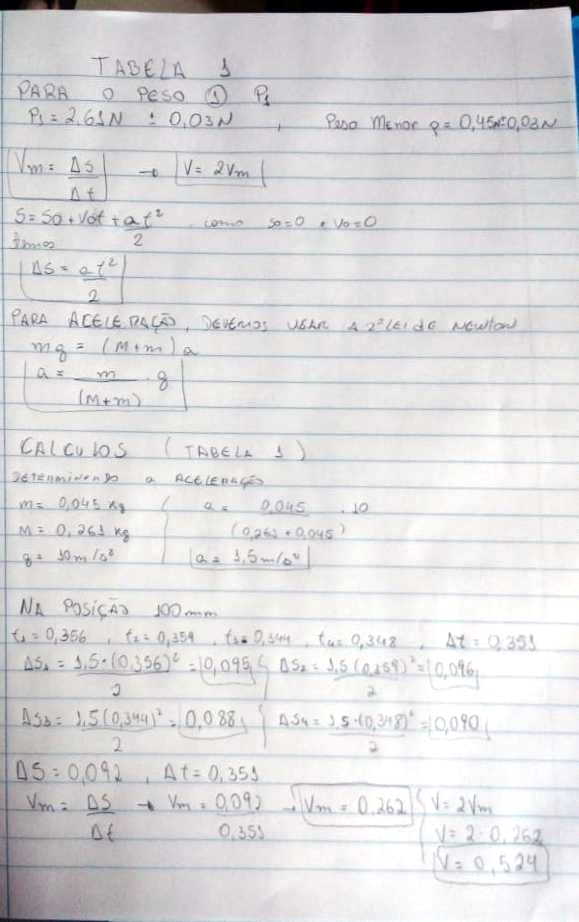 TABELA 1
PARA O PESO ① P1
P1 = 2,61N ± 0,03N , Peso Menor p = 0,45N±0,03N
Vm = ΔS/Δt → V = 2Vm
S = So + Vot + at²/2 como so=0 e vo=0
temos
ΔS = at²/2
PARA ACELERAÇÃO, DEVEMOS USAR A 2ª LEI de NEWTON
mg = (M+m) a
a = m/(M+m) . g
CALCULOS ( TABELA 1 )
DETERMINANDO a ACELERAÇÃO
m = 0,045 kg a = 0,045/(0,261 + 0,045) . 10
M = 0,261 kg
g = 10m/s² a = 1,5m/s²
NA POSIÇÃO 100mm
t1 = 0,356 , t2 = 0,359 , t3 = 0,344 , t4 = 0,348 , Δt = 0,351
ΔS1 = 1,5·(0,356)²/2 = 0,095 ΔS2 = 1,5(0,359)²/2 = 0,096
ΔS3 = 1,5(0,344)²/2 = 0,088 ΔS4 = 1,5·(0,348)²/2 = 0,090
ΔS = 0,092 , Δt = 0,351
Vm = ΔS/Δt → Vm = 0,092/0,351 → Vm = 0,262 V = 2Vm
V = 2·0,262
V = 0,524